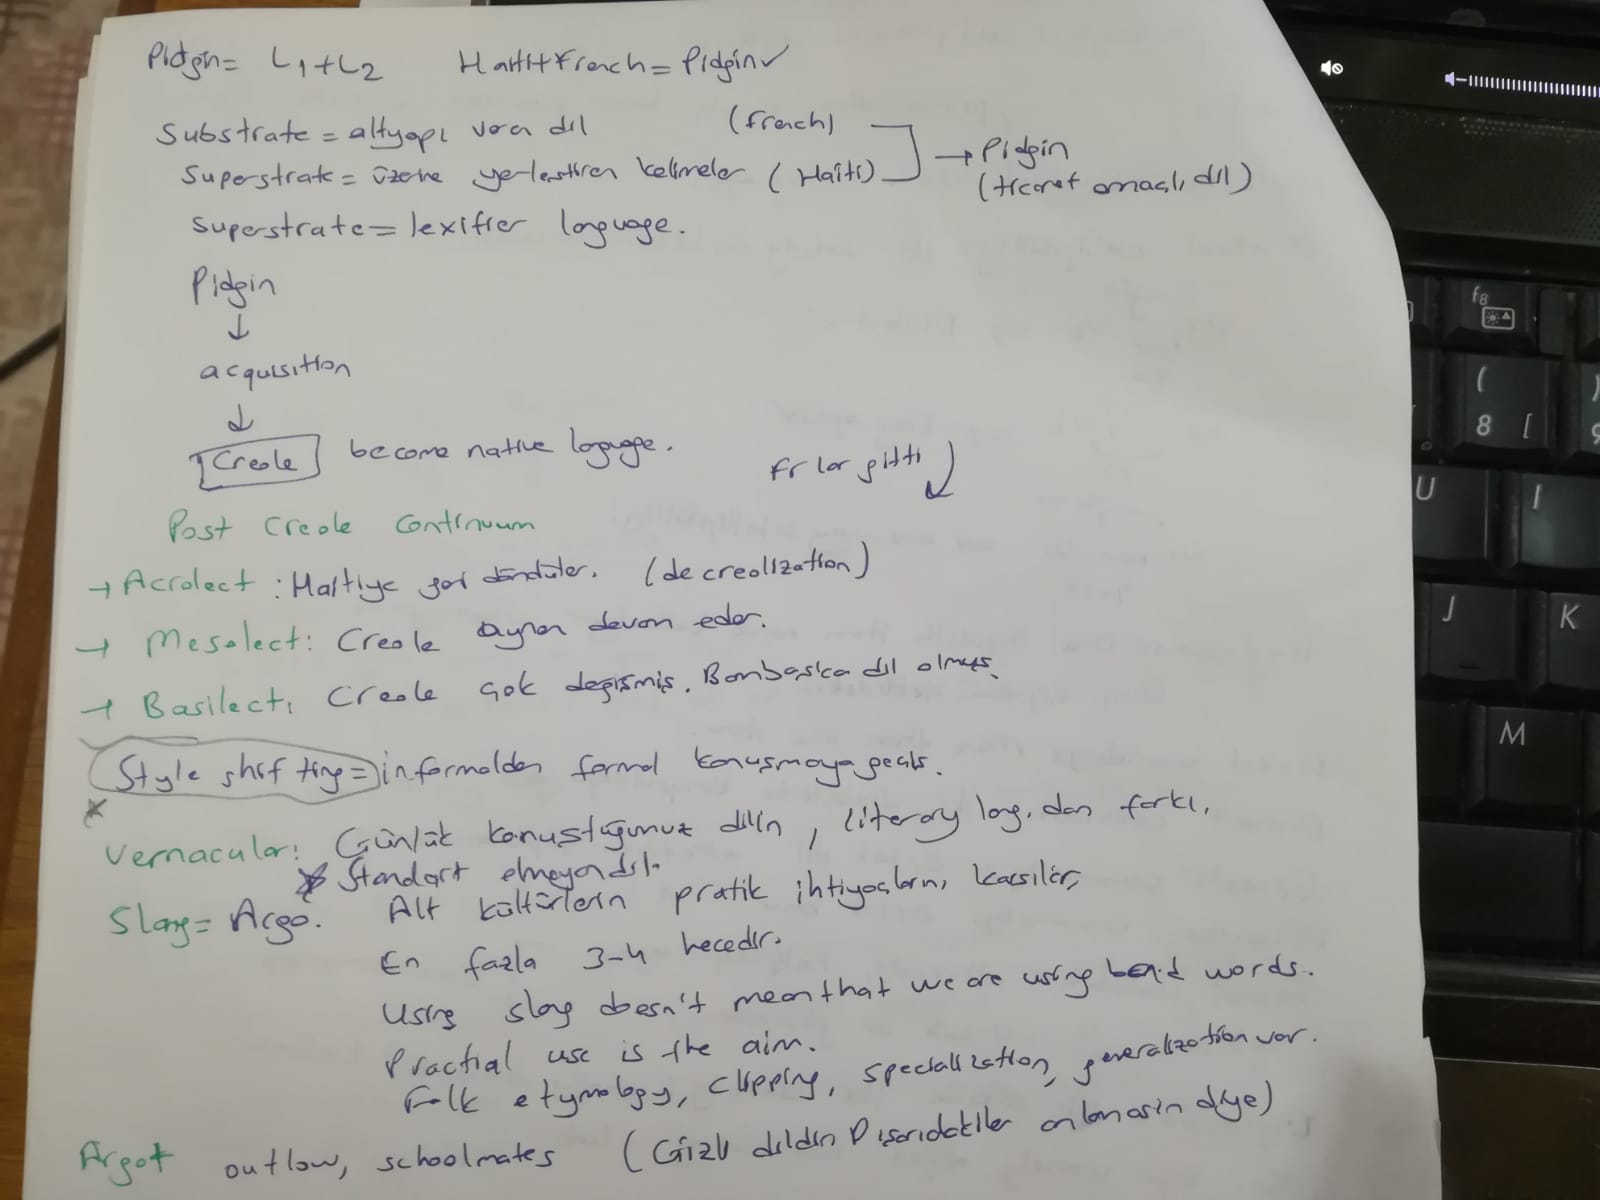 Pidgin = L1+L2 Haiti+French = Pidgin ✓
Substrate = altyapı veren dil (french)
Superstrate = üzerine yerleştiren kelimeler (Haiti) → Pidgin
(ticaret amaçlı dil)
Superstrate = lexifier language.
Pidgin
↓
acquisition
↓
Creole become native language.
Fr lar gitti
Post Creole Continuum
→ Acrolect : Haitiye geri döndüler. (decreolization)
→ Mesolect : Creole aynen devam eder.
→ Basilect : Creole çok değişmiş. Bambaşka dil olmuş.
Style shifting = informalden formal konuşmaya geçiş.
Vernacular : Günlük konuştuğumuz dilin, literary lang. dan farkı.
Standart olmayan dil.
Slang = Argo. Alt kültürlerin pratik ihtiyaçlarını karşılar,
En fazla 3-4 hecedir.
Using slang doesn't mean that we are using bad words.
Practial use is the aim.
Folk etymology, clipping, speciallization, generalization var.
Argot outlow, schoolmates (Gizli dildir Dışarıdakiler anlamasın diye)
f8
( 8 [
U
I
J
K
M